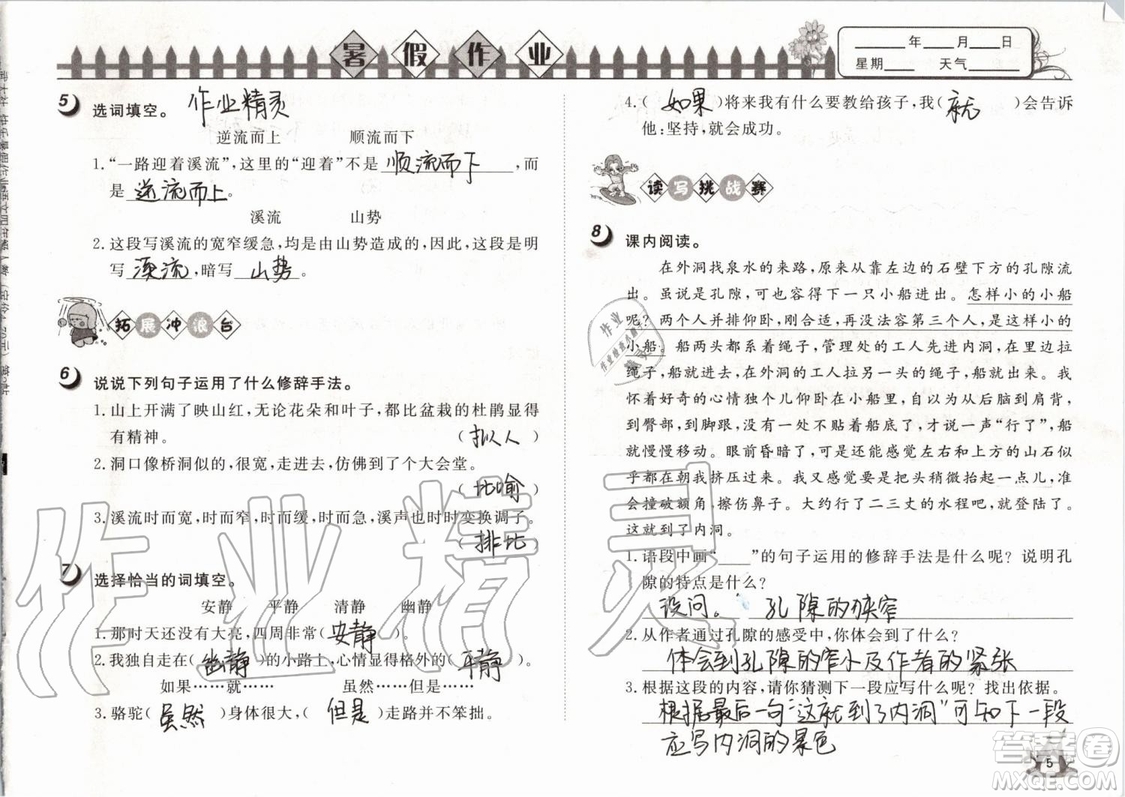 暑假作业
____年____月____日
星期____ 天气____
5 选词填空。 作业精灵
逆流而上 顺流而下
1.“一路迎着溪流”，这里的“迎着”不是 顺流而下 ，而
是 逆流而上 。
溪流 山势
2.这段写溪流的宽窄缓急，均是由山势造成的，因此，这段是明
写 溪流 ，暗写 山势 。
拓展冲浪台
6 说说下列句子运用了什么修辞手法。
1.山上开满了映山红，无论花朵和叶子，都比盆栽的杜鹃显得
有精神。 （拟人）
2.洞口像桥洞似的，很宽，走进去，仿佛到了个大会堂。
（比喻）
3.溪流时而宽，时而窄，时而缓，时而急，溪声也时时变换调子。
（排比）
7 选择恰当的词填空。
安静 平静 清静 幽静
1.那时天还没有大亮，四周非常（安静）。
2.我独自走在（幽静）的小路上，心情显得格外的（平静）。
如果……就…… 虽然……但是……
3.骆驼（虽然）身体很大，（但是）走路并不笨拙。
4.（如果）将来我有什么要教给孩子，我（就）会告诉
他：坚持，就会成功。
读写挑战赛
8 课内阅读。
在外洞找泉水的来路，原来从靠左边的石壁下方的孔隙流
出。虽说是孔隙，可也容得下一只小船进出。怎样小的小船
呢？两个人并排仰卧，刚合适，再没法容第三个人，是这样小的
小船。船两头都系着绳子，管理处的工人先进内洞，在里边拉
绳子，船就进去，在外洞的工人拉另一头的绳子，船就出来。我
怀着好奇的心情独个儿仰卧在小船里，自以为从后脑到肩背，
到臀部，到脚跟，没有一处不贴着船底了，才说一声“行了”，船
就慢慢移动。眼前昏暗了，可是还能感觉左右和上方的山石似
乎都在朝我挤压过来。我又感觉要是把头稍微抬起一点儿，准
会撞破额角，擦伤鼻子。大约行了二三丈的水程吧，就登陆了。
这就到了内洞。
1.语段中画“____”的句子运用的修辞手法是什么呢？说明孔
隙的特点是什么？
设问。 孔隙的狭窄
2.从作者通过孔隙的感受中，你体会到了什么？
体会到孔隙的窄小及作者的紧张
3.根据这段的内容，请你猜测下一段应写什么？找出依据。
根据最后一句“这就到了内洞”可知下一段
应写内洞的景色
5
作业精灵
答案圈
MXQE.COM